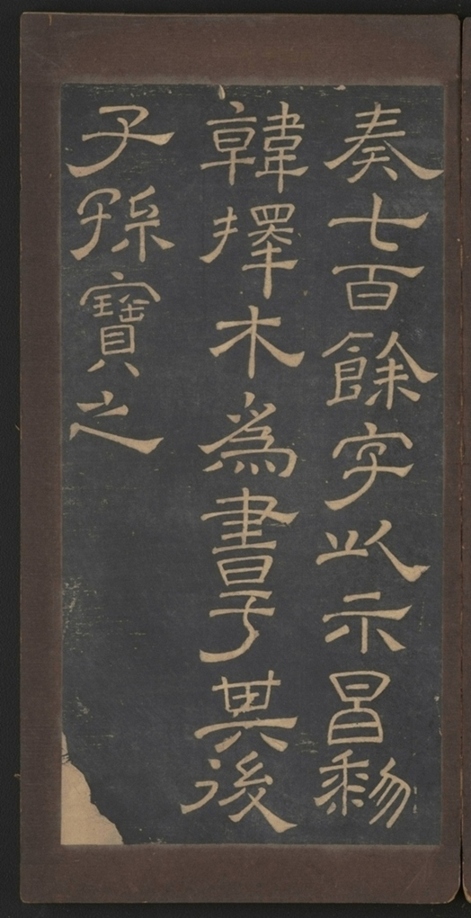 奏七百餘字以示昌黎
韓擇木爲書于其後
子孫寶之